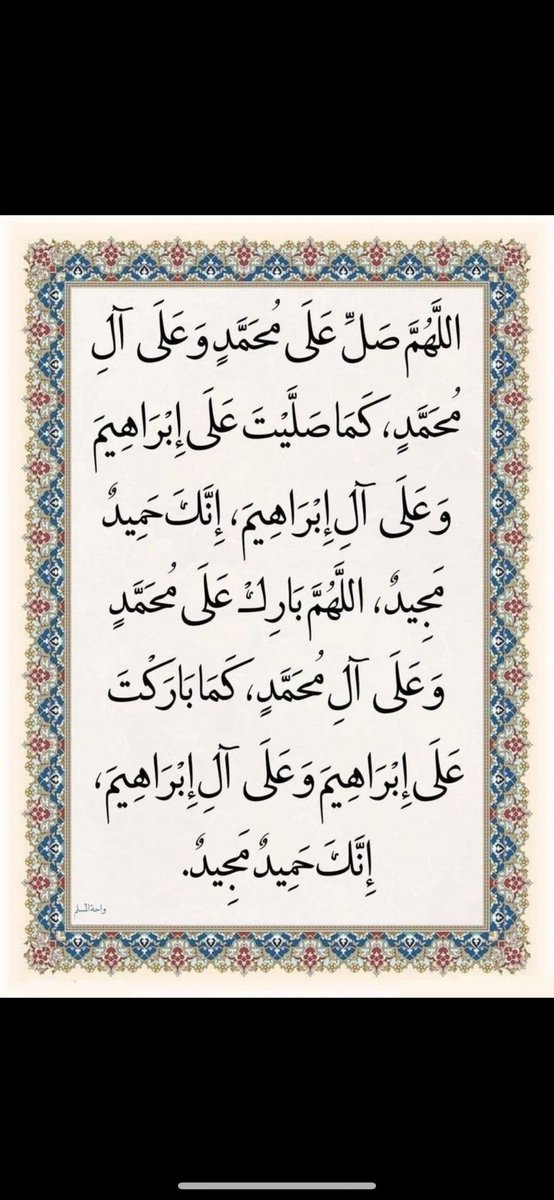 اللَّهُمَّ صَلِّ عَلَى مُحَمَّدٍ وَعَلَى آلِ
مُحَمَّدٍ، كَمَا صَلَّيْتَ عَلَى إِبْرَاهِيمَ
وَعَلَى آلِ إِبْرَاهِيمَ، إِنَّكَ حَمِيدٌ
مَجِيدٌ، اللَّهُمَّ بَارِكْ عَلَى مُحَمَّدٍ
وَعَلَى آلِ مُحَمَّدٍ، كَمَا بَارَكْتَ
عَلَى إِبْرَاهِيمَ وَعَلَى آلِ إِبْرَاهِيمَ،
إِنَّكَ حَمِيدٌ مَجِيدٌ.
واحة المسلم